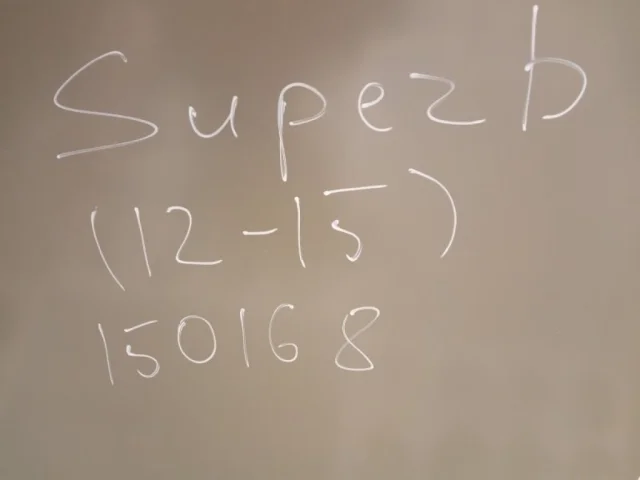 Superb
(12-15)
150168